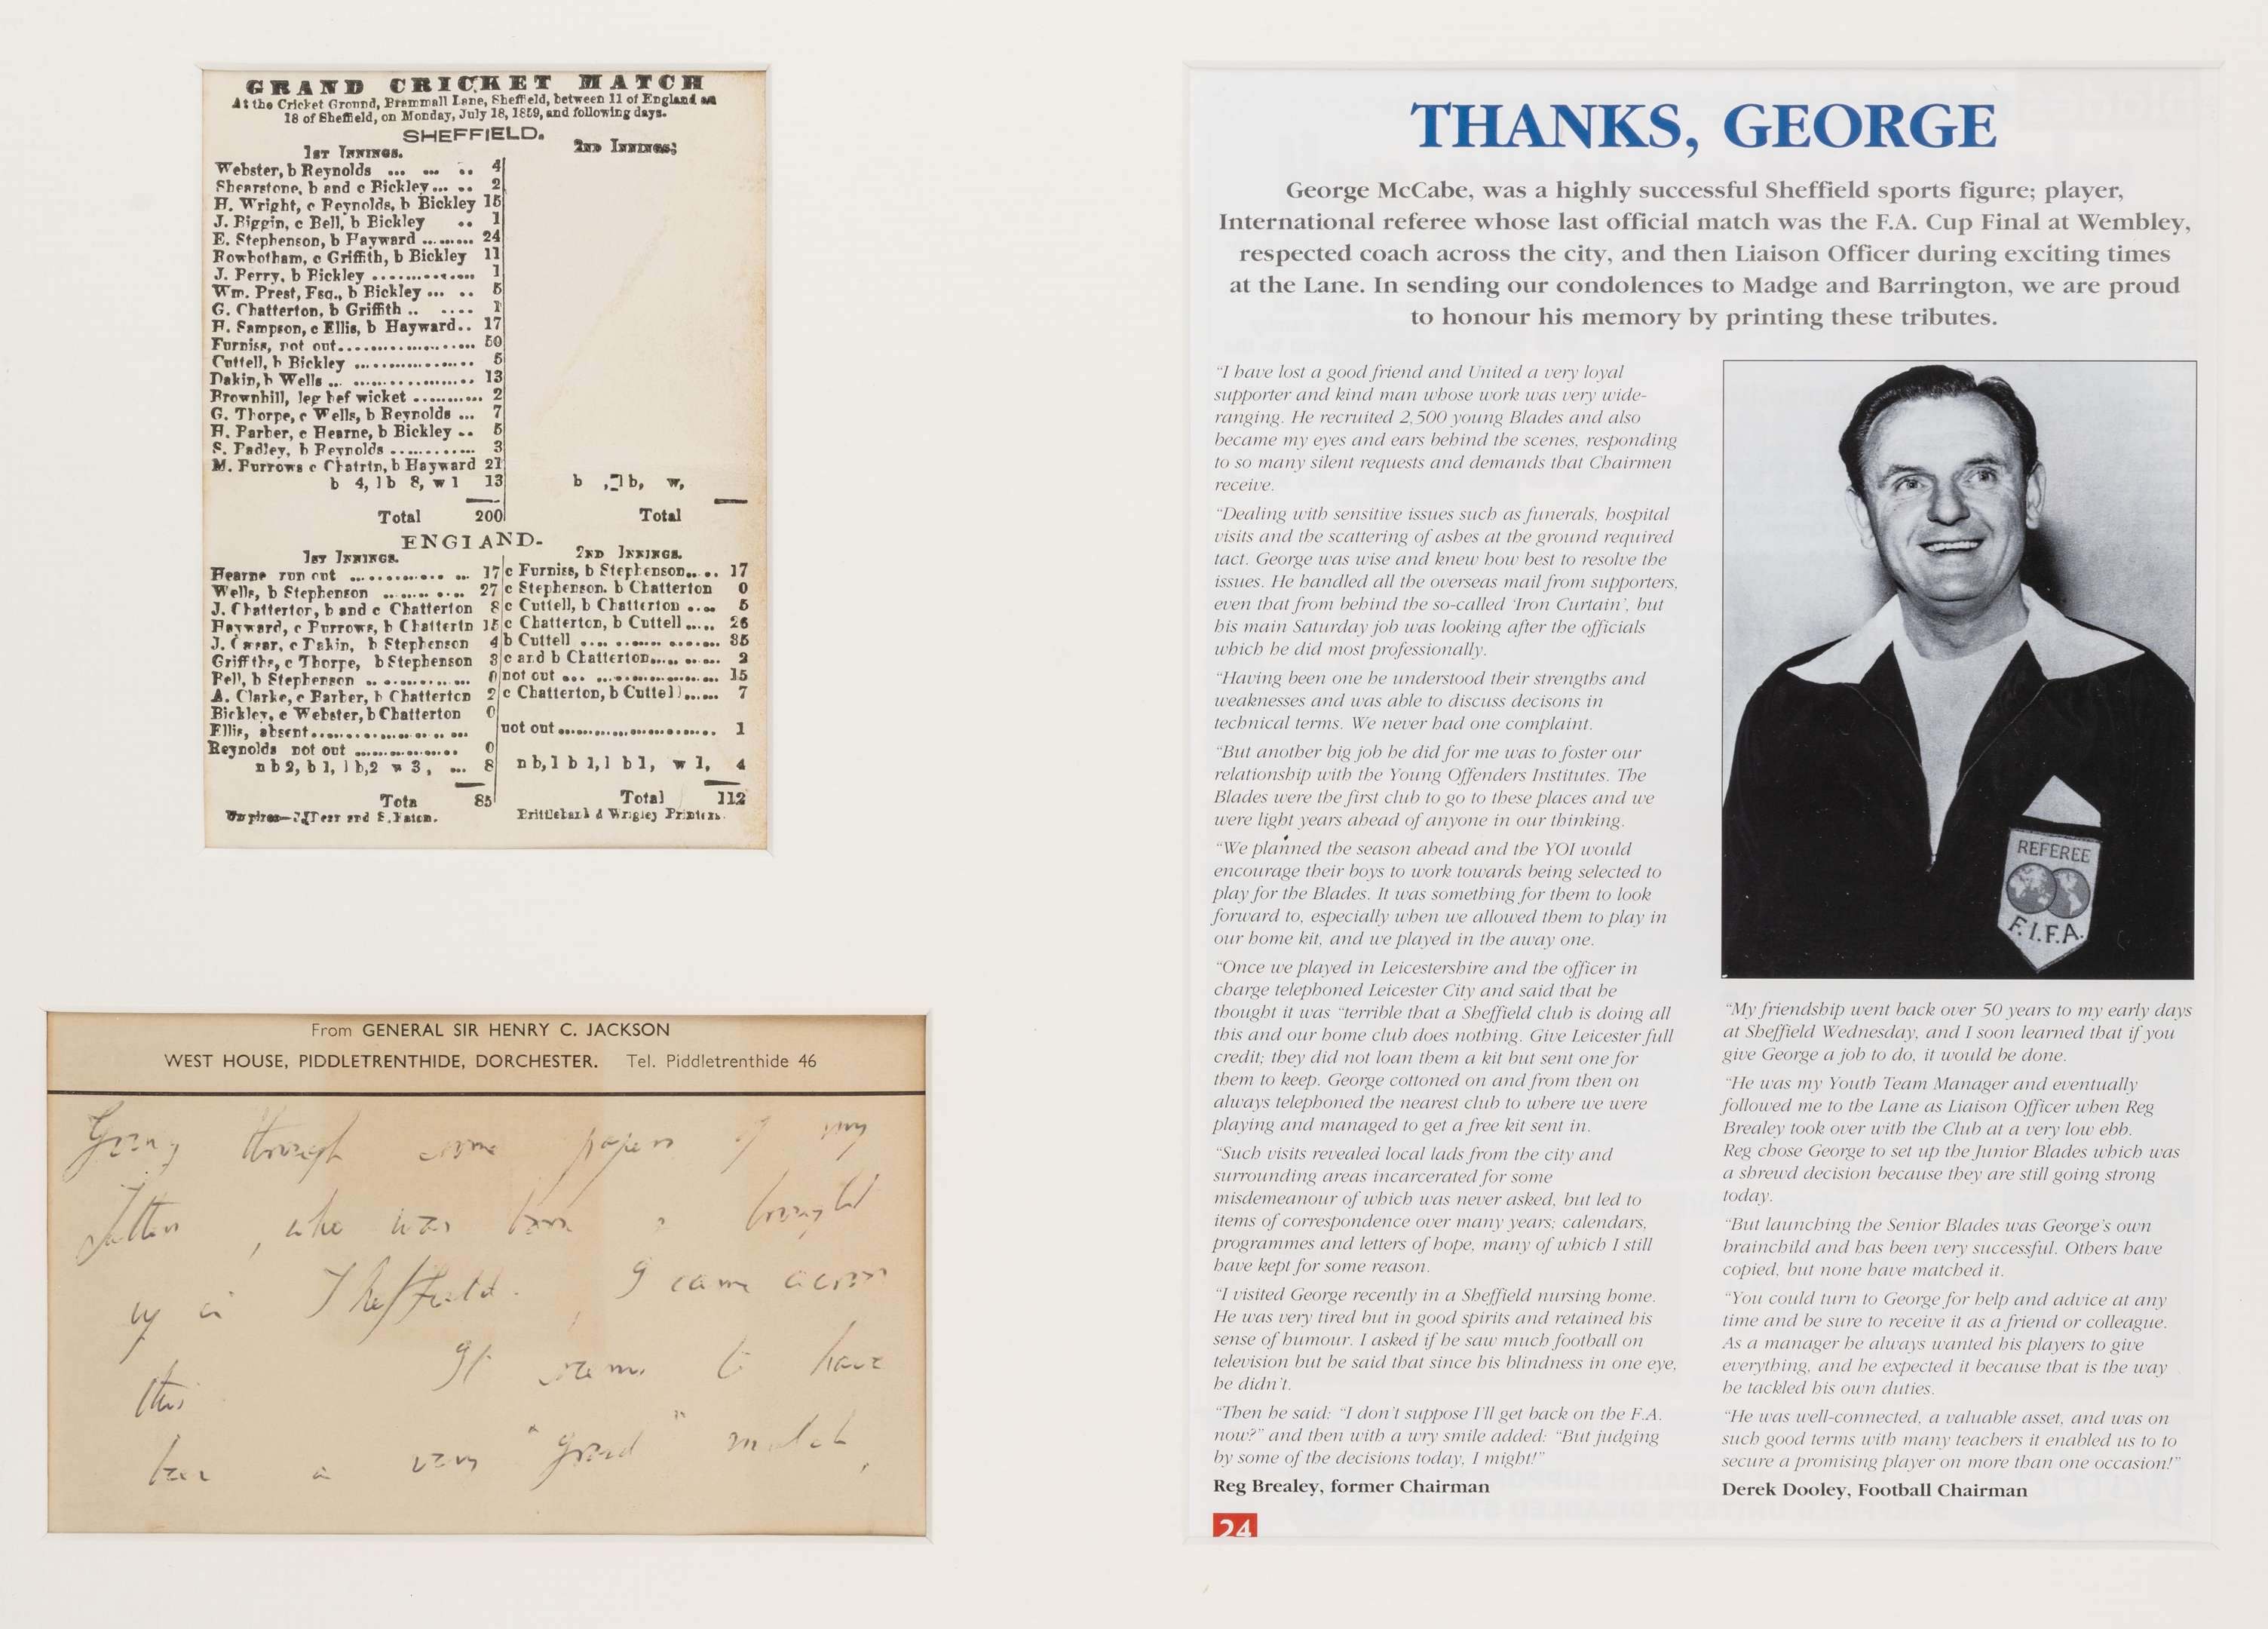 GRAND CRICKET MATCH
At the Cricket Ground, Brammall Lane, Sheffield, between 11 of England an
18 of Sheffield, on Monday, July 18, 1859, and following days.
SHEFFIELD.
1st Innings.
2nd Innings;
Webster, b Reynolds ... ... .. 4
Shearstone, b and c Bickley... .. 2
H. Wright, c Reynolds, b Bickley 15
J. Biggin, c Bell, b Bickley .. 1
E. Stephenson, b Hayward ......... 24
Rowbotham, c Griffith, b Bickley 11
J. Perry, b Bickley .............. 1
Wm. Prest, Esq., b Bickley ... .. 5
G. Chatterton, b Griffith .. .... 1
H. Sampson, c Ellis, b Hayward.. 17
Furniss, not out................... 50
Cuttell, b Bickley ................ 5
Dakin, b Wells ... ................. 13
Brownhill, leg bef wicket ........... 2
G. Thorpe, c Wells, b Reynolds ... 7
H. Barber, c Hearne, b Bickley .. 5
S. Padley, b Reynolds ............ 3
M. Burrows c Chatrtn, b Hayward 21
b 4, l b 8, w 1 13
b , l b, w,
Total 200
Total
ENGLAND-
1st Innings.
2nd Innings.
Hearne run out ............. ... 17 c Furniss, b Stephenson..... 17
Wells, b Stephenson ............ 27 c Stephenson. b Chatterton 0
J. Chatterton, b and c Chatterton 8 c Cuttell, b Chatterton .... 5
Hayward, c Burrows, b Chattertn 15 c Chatterton, b Cuttell ..... 26
J. Cæsar, c Dakin, b Stephenson 4 b Cuttell .... ............... 35
Griffths, c Thorpe, b Stephenson 3 c and b Chatterton..... ...... 2
Bell, b Stephenson .. ............ 0 not out ... .................. 15
A. Clarke, c Barber, b Chatterton 2 c Chatterton, b Cuttell)...... 7
Bickley, c Webster, b Chatterton 0
Ellis, absent........................ not out ....................... 1
Reynolds not out ................ 0
n b 2, b 1, l b, 2 w 3, ... 8 n b, 1 b 1, l b 1, w 1, 4
Tota 85 Total 112
and E. Eaton. Brittlebank & Wrigley Printers.
From GENERAL SIR HENRY C. JACKSON
WEST HOUSE, PIDDLETRENTHIDE, DORCHESTER. Tel. Piddletrenthide 46
Going through some papers of my
father, who was born & brought
up in Sheffield. I came across
this. It seems to have
been a very "grand" match,
THANKS, GEORGE
George McCabe, was a highly successful Sheffield sports figure; player,
International referee whose last official match was the F.A. Cup Final at Wembley,
respected coach across the city, and then Liaison Officer during exciting times
at the Lane. In sending our condolences to Madge and Barrington, we are proud
to honour his memory by printing these tributes.
"I have lost a good friend and United a very loyal
supporter and kind man whose work was very wide-
ranging. He recruited 2,500 young Blades and also
became my eyes and ears behind the scenes, responding
to so many silent requests and demands that Chairmen
receive.
"Dealing with sensitive issues such as funerals, hospital
visits and the scattering of ashes at the ground required
tact. George was wise and knew how best to resolve the
issues. He handled all the overseas mail from supporters,
even that from behind the so-called 'Iron Curtain', but
his main Saturday job was looking after the officials
which he did most professionally.
"Having been one he understood their strengths and
weaknesses and was able to discuss decisons in
technical terms. We never had one complaint.
"But another big job he did for me was to foster our
relationship with the Young Offenders Institutes. The
Blades were the first club to go to these places and we
were light years ahead of anyone in our thinking.
"We planned the season ahead and the YOI would
encourage their boys to work towards being selected to
play for the Blades. It was something for them to look
forward to, especially when we allowed them to play in
our home kit, and we played in the away one.
"Once we played in Leicestershire and the officer in
charge telephoned Leicester City and said that he
thought it was "terrible that a Sheffield club is doing all
this and our home club does nothing. Give Leicester full
credit; they did not loan them a kit but sent one for
them to keep. George cottoned on and from then on
always telephoned the nearest club to where we were
playing and managed to get a free kit sent in.
"Such visits revealed local lads from the city and
surrounding areas incarcerated for some
misdemeanour of which was never asked, but led to
items of correspondence over many years; calendars,
programmes and letters of hope, many of which I still
have kept for some reason.
"I visited George recently in a Sheffield nursing home.
He was very tired but in good spirits and retained his
sense of humour. I asked if he saw much football on
television but he said that since his blindness in one eye,
he didn't.
"Then he said: "I don't suppose I'll get back on the F.A.
now?" and then with a wry smile added: "But judging
by some of the decisions today, I might!"
Reg Brealey, former Chairman
24
REFEREE
F.I.F.A.
"My friendship went back over 50 years to my early days
at Sheffield Wednesday, and I soon learned that if you
give George a job to do, it would be done.
"He was my Youth Team Manager and eventually
followed me to the Lane as Liaison Officer when Reg
Brealey took over with the Club at a very low ebb.
Reg chose George to set up the Junior Blades which was
a shrewd decision because they are still going strong
today.
"But launching the Senior Blades was George's own
brainchild and has been very successful. Others have
copied, but none have matched it.
"You could turn to George for help and advice at any
time and be sure to receive it as a friend or colleague.
As a manager he always wanted his players to give
everything, and he expected it because that is the way
he tackled his own duties.
"He was well-connected, a valuable asset, and was on
such good terms with many teachers it enabled us to to
secure a promising player on more than one occasion!"
Derek Dooley, Football Chairman